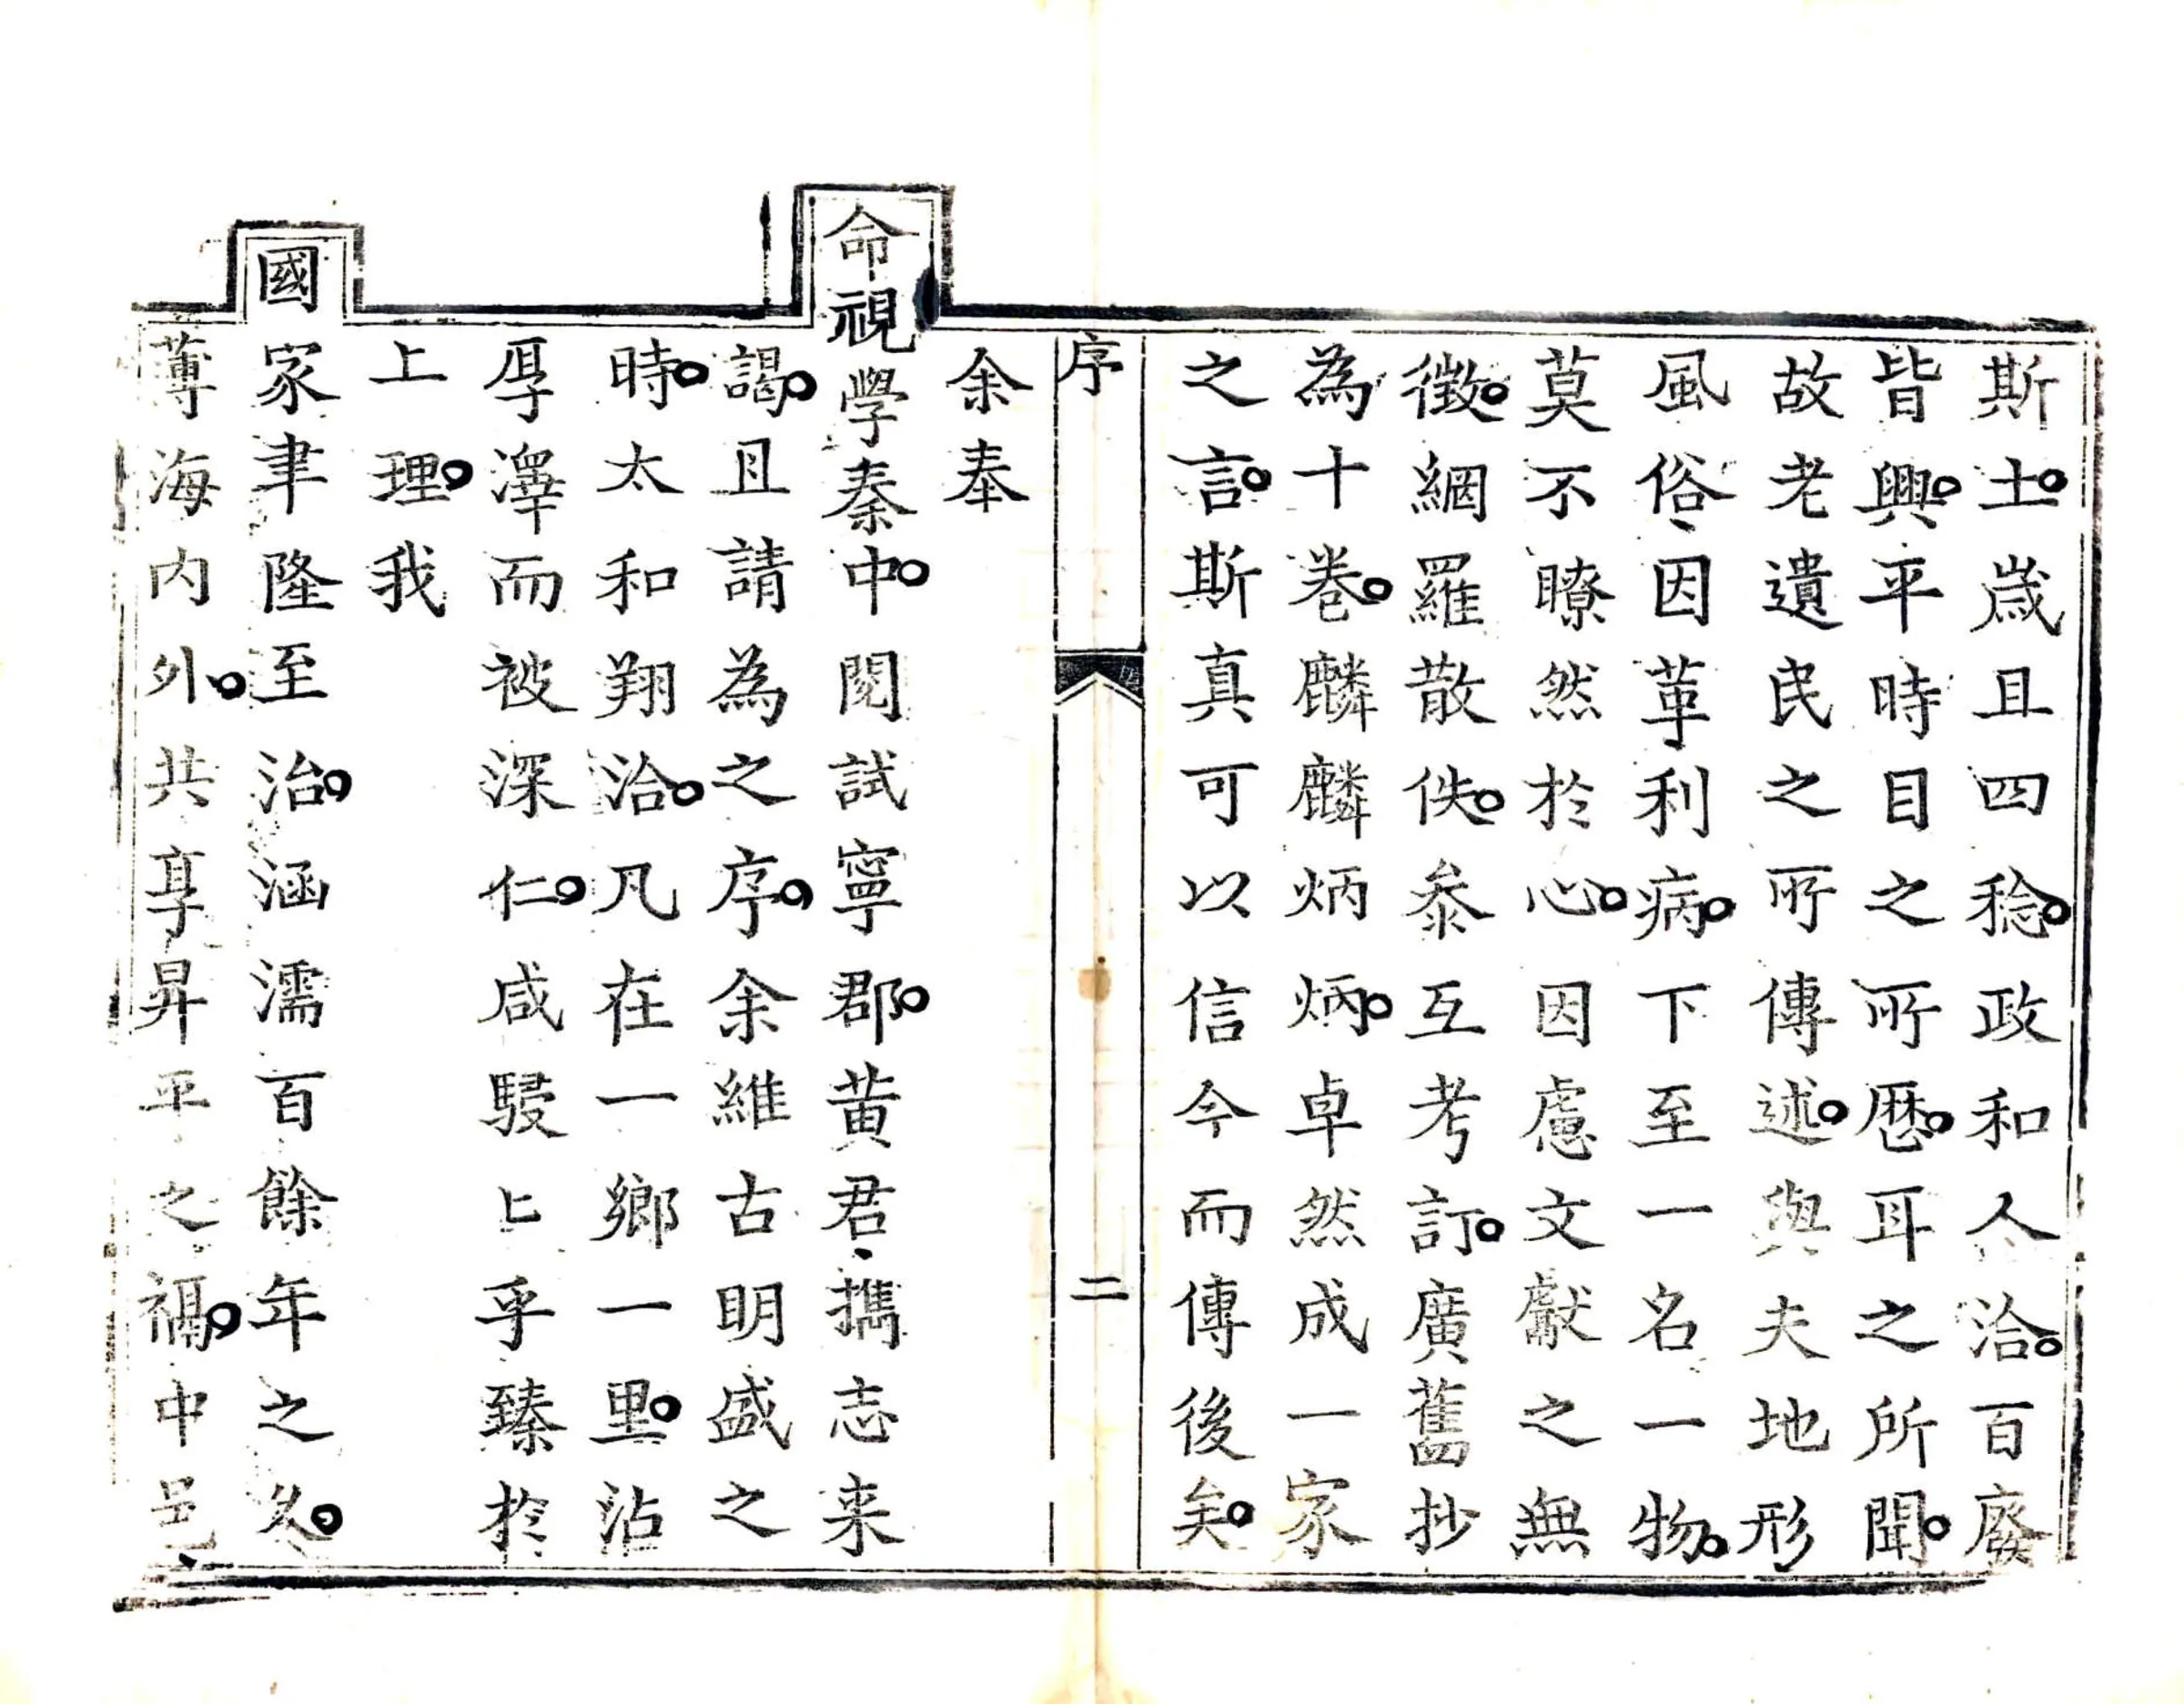 斯土。歲且四稔。政和人洽。百廢
皆興。平時目之所歷。耳之所聞。
故老遺民之所傳述。與夫地形
風俗、因革利病。下至一名一物。
莫不瞭然於心。因慮文獻之無
徵。網羅散佚。叅互考訂。廣舊抄
為十卷。麟麟炳炳。卓然成一家
之言。斯真可以信今而傳後矣。
序
二
余奉
命視學秦中。閱試寧郡。黄君、攜志来
謁。且請為之序。余維古明盛之
時。太和翔洽。凡在一鄉一里。沾
厚澤而被深仁。咸駸〻乎臻於
上理。我
國家聿隆至治。涵濡百餘年之久。
薄海内外。共享昇平之福。中邑、